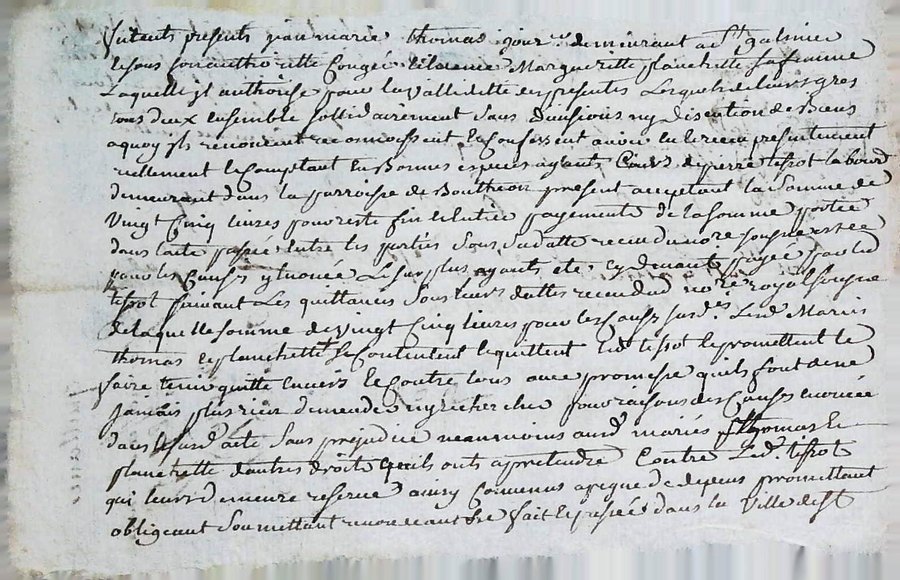 furents presents jean marie thomas jour.r demeurant a St galmier
et sous son authorité Congé et licence Margueritte planchette sa femme
Laquelle jl authorise pour la vallidette des presentes Lesquels de leurs gres
tous deux ensemble sollidairement sans divisions ny discution de Biens
a quoy jls renoncent reconnoissent et Confessent avoir eu et receu presentement
reellement et Comptant En Bonnes especes ayants Cours de pierre tissot labour
demeurant dans la parroisse de Boutheon present acceptant la somme de
Vingt Cinq livres pour reste fin et Entier payement de la somme portée
dans lacte passée entre les parties sous sa datte receu du no.re soussigné
pour les Causes y Enoncée Le surplus ayants eté cy devant payée par led
tissot suivant Les quittances sous leurs dattes receu dud no.re royal soussigne
de laquelle somme de Vingt Cinq livres pour les Causes susd.es Lesd Maries
thomas et planchette se Contentent et quittent led tissot et promettent le
faire tenir quitte Envers et Contre tous avec promesse quils font de ne
jamais plus rien demender ny rechercher pour raisons des Causes enoncée
dans le susd acte sans prejudice neanmoins aud mariés thomas Et
planchette dautres droits quils ont a pretendre Contre Led. tissot
qui leurs demeure reservé ainsy Convenus a peyne de depens promettant
obligeant soumettant renonceant &re fait et passée dans la Ville de St